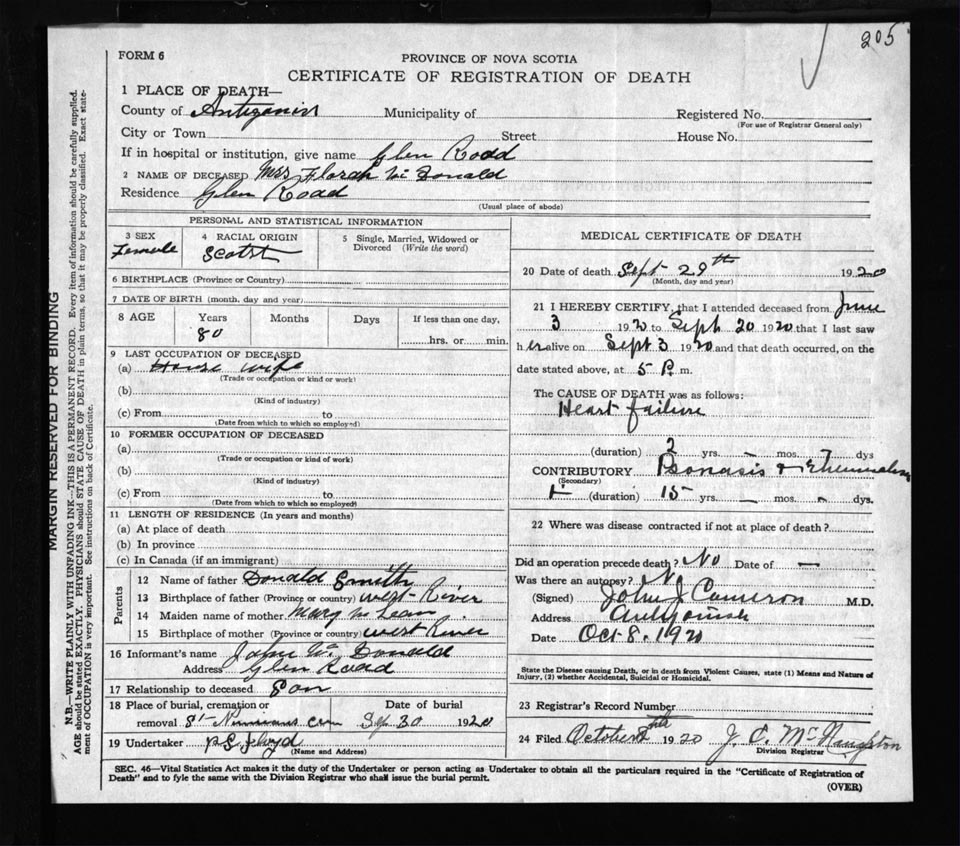 205
FORM 6
PROVINCE OF NOVA SCOTIA
CERTIFICATE OF REGISTRATION OF DEATH
1 PLACE OF DEATH—
County of Antigonish Municipality of Registered No.
(For use of Registrar General only)
City or Town Street House No.
If in hospital or institution, give name Glen Roadd
2 NAME OF DECEASED Mrs Florah Mc Donald
Residence Glen Roadd
(Usual place of abode)
PERSONAL AND STATISTICAL INFORMATION
3 SEX 4 RACIAL ORIGIN 5 Single, Married, Widowed or
Divorced (Write the word)
Female Scotst
6 BIRTHPLACE (Province or Country)
7 DATE OF BIRTH (month, day and year)
8 AGE Years Months Days If less than one day,
80 hrs. or min.
9 LAST OCCUPATION OF DECEASED
(a) House wife
(Trade or occupation or kind or work)
(b)
(Kind of industry)
(c) From to
(Date from which to which so employed)
10 FORMER OCCUPATION OF DECEASED
(a)
(Trade or occupation or kind of work)
(b)
(Kind of industry)
(c) From to
(Date from which to which so employed)
11 LENGTH OF RESIDENCE (In years and months)
(a) At place of death
(b) In province
(c) In Canada (if an immigrant)
Parents
12 Name of father Donald Smith
13 Birthplace of father (Province or country) West River
14 Maiden name of mother Mary McLean
15 Birthplace of mother (Province or country) West River
16 Informant's name John Mc Donald
Address Glen Roadd
17 Relationship to deceased Son
18 Place of burial, cremation or Date of burial
removal St Ninians cem Sep 30 1920
19 Undertaker Floyd
(Name and Address)
MEDICAL CERTIFICATE OF DEATH
20 Date of death Sept 29th 1920
(Month, day and year)
21 I HEREBY CERTIFY, that I attended deceased from June
3 1920 to Sept 20 1920 that I last saw
her alive on Sept 3 1920 and that death occurred, on the
date stated above, at 5 P. m.
The CAUSE OF DEATH was as follows:
Heart failure
(duration) 2 yrs. — mos. 7 dys
CONTRIBUTORY Psoriasis & Rheumatism
(Secondary)
(duration) 15 yrs. — mos. dys.
22 Where was disease contracted if not at place of death?
Did an operation precede death? No Date of —
Was there an autopsy? No
(Signed) John J Cameron M.D.
Address Antigonish
Date Oct 8, 1920
State the Disease causing Death, or in death from Violent Causes, state (1) Means and Nature of
Injury, (2) whether Accidental, Suicidal or Homicidal.
23 Registrar's Record Number
24 Filed October 1920 J. C. McNaughton
Division Registrar
SEC. 46—Vital Statistics Act makes it the duty of the Undertaker or person acting as Undertaker to obtain all the particulars required in the "Certificate of Registration of
Death" and to fyle the same with the Division Registrar who shall issue the burial permit.
(OVER)
MARGIN RESERVED FOR BINDING
N.B.—WRITE PLAINLY WITH UNFADING INK—THIS IS A PERMANENT RECORD. Every item of information should be carefully supplied.
AGE should be stated EXACTLY. PHYSICIANS should STATE CAUSE OF DEATH in plain terms, so that it may be properly classified. Exact state-
ment of OCCUPATION is very important. See instructions on back of Certificate.